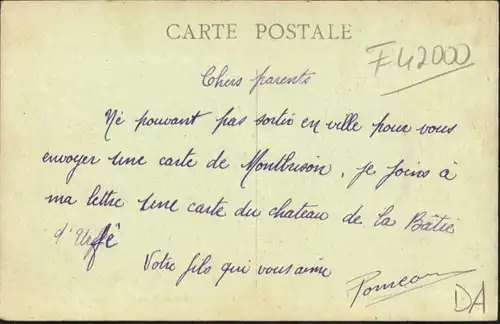 CARTE POSTALE
F42000
Chers parents
Né pouvant pas sortir en ville pour vous
envoyer une carte de Montbrison, je joins à
ma lettre une carte du chateau de la Bâtie
d'Urfé
Votre fils qui vous aime
DA